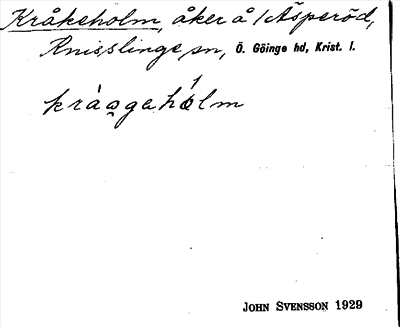 Kråkeholm, åker å /Åsperöd,
Knisslinge sn, Ö. Göinge hd, Krist. l.
kráogahólm
JOHN SVENSSON 1929